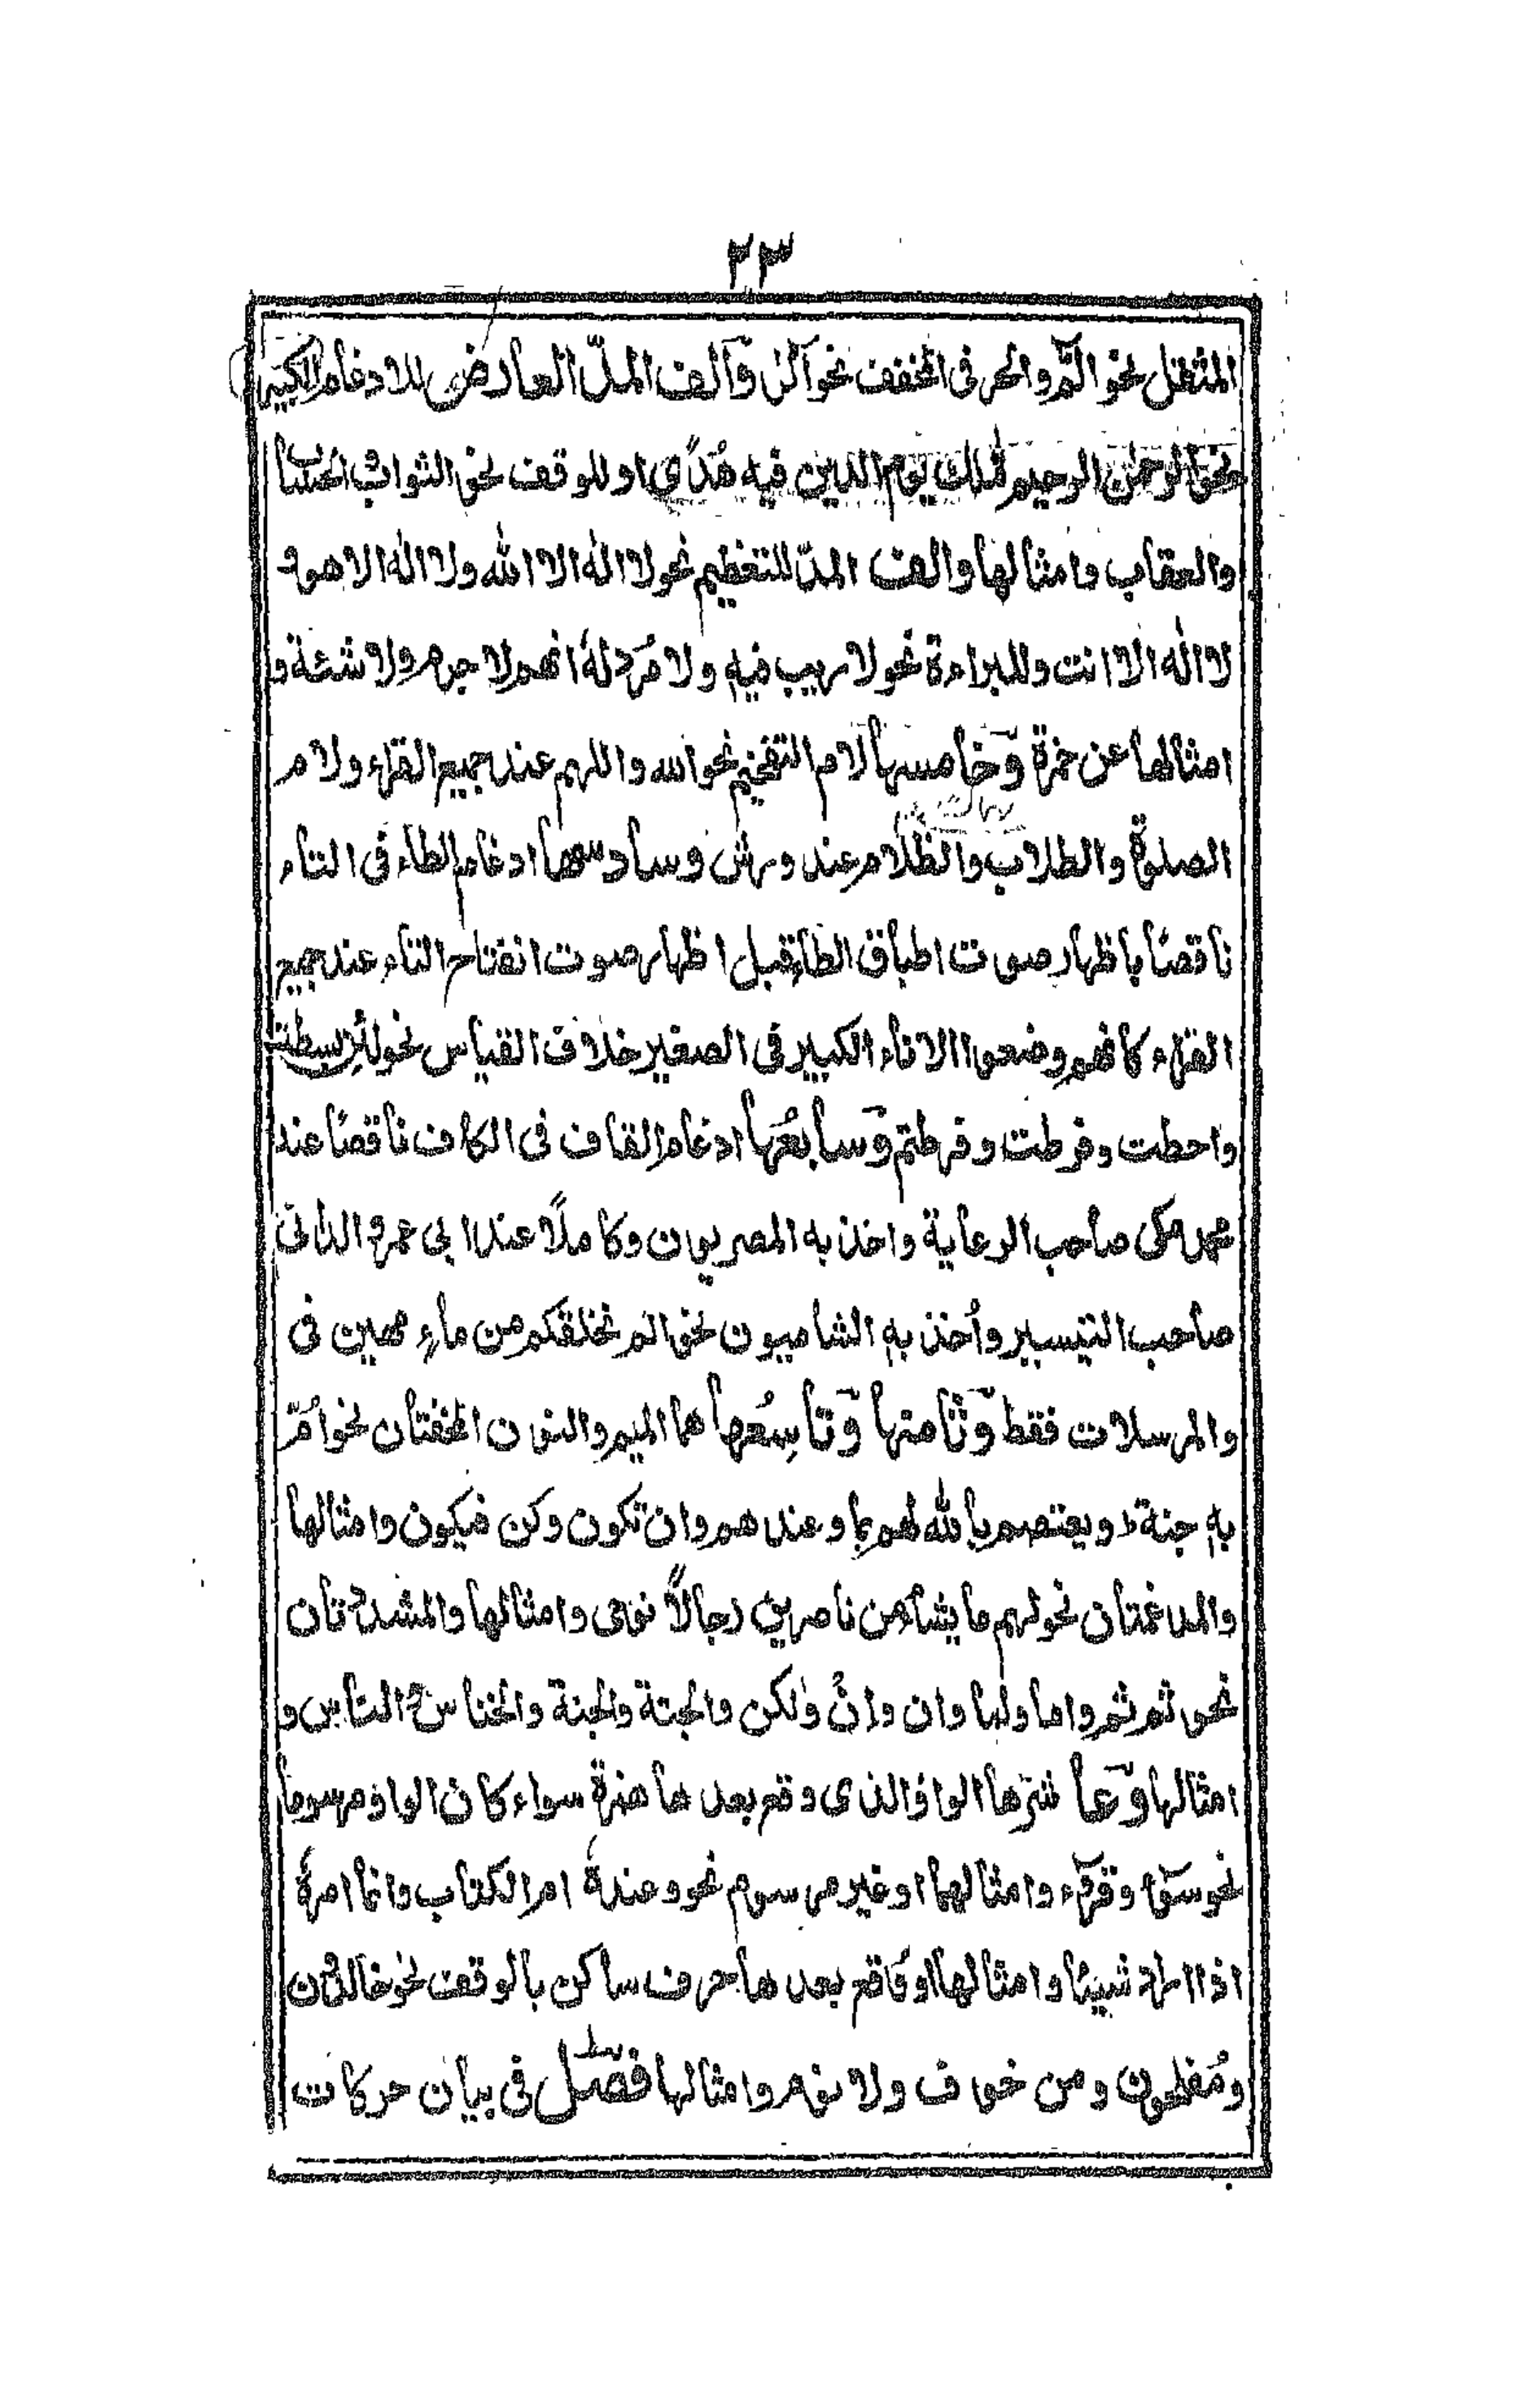 ٢٣
المثقل نحو الٓمّٓ والحر فى المخفف نحو آلٰن وَآلف المدّ العارض للادغام الكبير
نحو الرحمٰن الرحيم مٰلك يوم الدين فيه هُدًى او للوقف نحو الثواب والحساب
والعقاب وامثالها والف المدّ للتعظيم نحو لا اله الا الله ولا اله الا هو و
لا اله الا انت وللبراءة نحو لا ريب فيه ولا مَردّ له انهم لا جرم ولا شئة و
امثالها عن حمزة وَخامسها لام التفخيم نحو الله واللهم عند جميع القراء ولام
الصلوة والطلاب والظلام عند ورش وسادسها ادغام الطاء فى التاء
ناقصًا باظهار صوت اطباق الطاء قبل اظهار صوت انفتاح التاء عند جميع
القراء كانهم وضعوا الاناء الكبير فى الصغير خلاف القياس نحو لئن بسطت
واحطت وفرطت وفرطتم وَسابعُها ادغام القاف فى الكاف ناقصًا عند
محمد مكى صاحب الرعاية واخذ به المصريون وكاملًا عند ابى عمرو الدانى
صاحب التيسير وأخذ به الشاميون نحو الم نخلقكم من ماء مهين فى
والمرسلات فقط وَثامنها وَتاسِعُها هما الميم والنون المخفتان نحو امْ
به جنة ويعتصم بالله لهم بما وعندهم وان تكون وكن فيكون وامثالها
والمدغمتان نحو لهم ما يشاء من ناصرين رجالًا نوحى وامثالها والمشددتان
نحو ثم ثم واما ولما وان وانّ ولكن والجنة والجنة والخناس الناس و
امثالها وَعاشرها الواو الذى وقع بعدها همزة سواء كان الواو مرسوما
نحو سوٓء وقروٓء وامثالهما او غير مرسوم نحو وعنده ام الكتاب وانما امره
اذا اراد شيئا وامثالها او وقع بعدها حرف ساكن بالوقف نحو خالدون
ومُفلحون ومن خوف ولا نوم وامثالها فصل فى بيان حركات